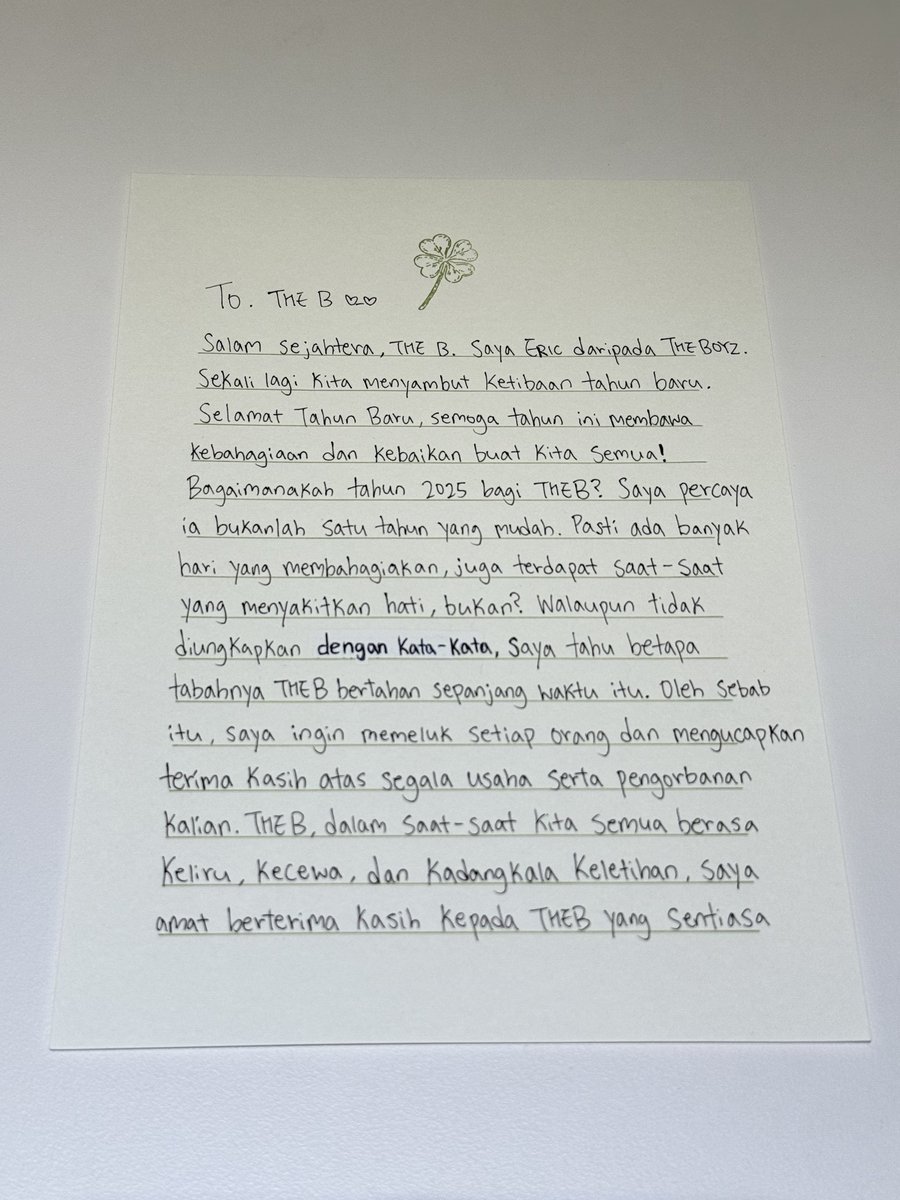 To. THE B ♡♡
Salam sejahtera, THE B. Saya ERIC daripada THE BOYZ.
Sekali lagi kita menyambut ketibaan tahun baru.
Selamat Tahun Baru, semoga tahun ini membawa
kebahagiaan dan kebaikan buat kita semua!
Bagaimanakah tahun 2025 bagi THE B? Saya percaya
ia bukanlah satu tahun yang mudah. Pasti ada banyak
hari yang membahagiakan, juga terdapat saat-saat
yang menyakitkan hati, bukan? Walaupun tidak
diungkapkan dengan kata-kata, saya tahu betapa
tabahnya THE B bertahan sepanjang waktu itu. Oleh sebab
itu, saya ingin memeluk setiap orang dan mengucapkan
terima kasih atas segala usaha serta pengorbanan
kalian. THE B, dalam saat-saat kita semua berasa
keliru, kecewa, dan kadangkala keletihan, saya
amat berterima kasih kepada THE B yang sentiasa